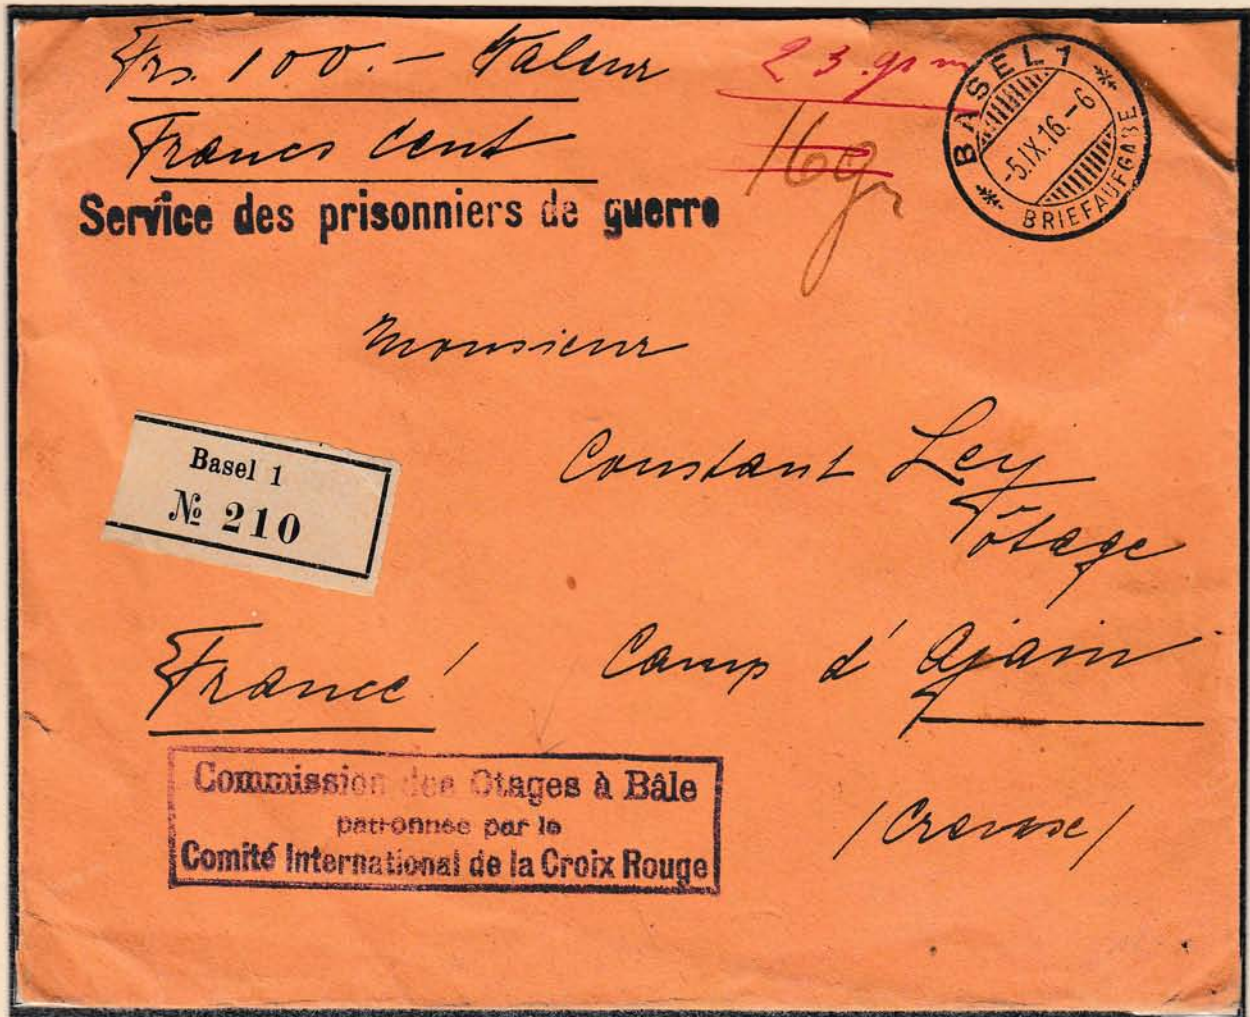 Frs. 100.- Valeur
23. gr
Francs Cent
16gr
BASEL 1
-5.IX.16.-6
BRIEFAUFGABE
Service des prisonniers de guerre
Monsieur
Constant Ley
Otage
Basel 1
№ 210
France!
Camp d'Ajain
Commission des Otages à Bâle
patronnée par le
Comité International de la Croix Rouge
/Creuse/